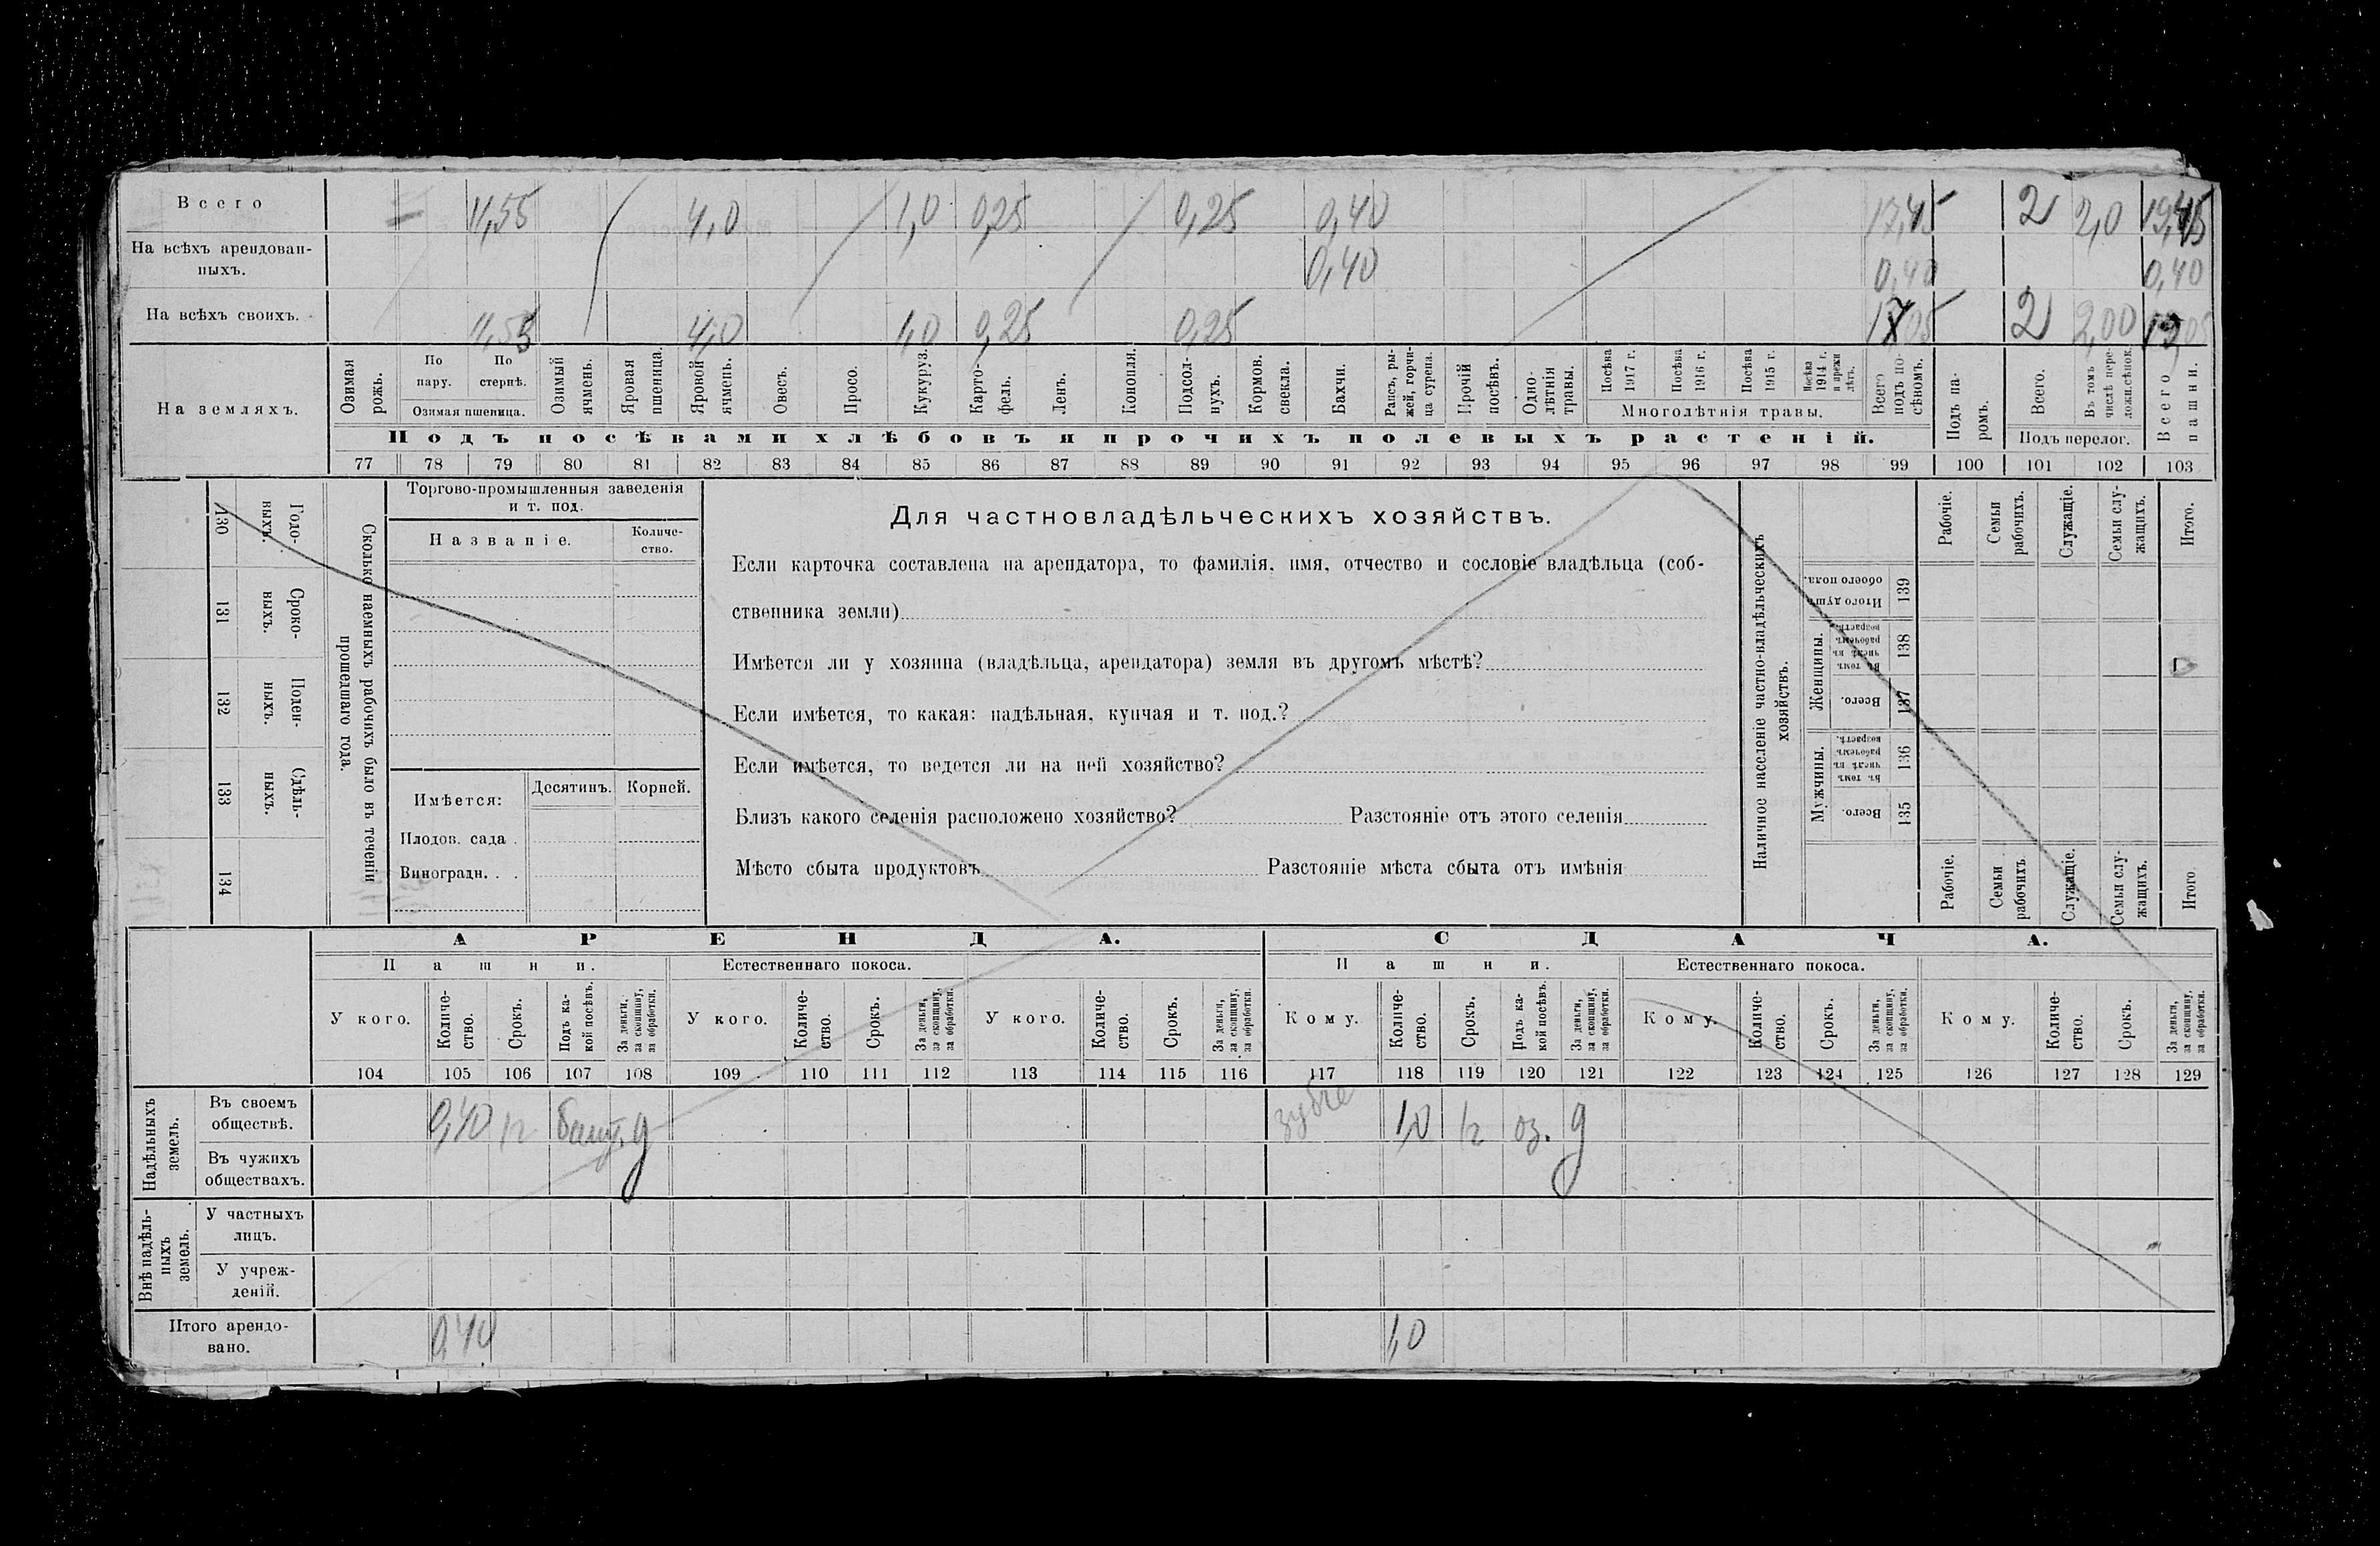 Всего 11,55 4,0 1,0 0,25 0,25 0,40 17,45 2 2,0 19,45
На всѣхъ арендован-
ныхъ. 0,40 0,40 0,40
На всѣхъ своихъ. 11,55 4,0 1,0 0,25 0,25 17,05 2 2,00
На земляхъ.
Озимая рожь.
По пару.
По стернѣ.
Озимая пшеница.
Озимый ячмень.
Яровая пшеница.
Яровой ячмень.
Овесъ.
Просо.
Кукуруз.
Карто-
фель.
Ленъ.
Конопля.
Подсол-
нухъ.
Кормов. свекла.
Бахчи.
Рапсъ, ры-
жей, горчи-
ца сурепа.
Прочій посѣвъ.
Одно-
лѣтнія травы.
Посѣва 1917 г.
Посѣва 1916 г.
Посѣва 1915 г.
Посѣва 1914 г. и прежн лѣтъ.
Многолѣтнія травы.
Всего подъ по-
сѣвомъ.
Подъ па-
ромъ.
Всего.
Въ томъ числѣ пере-
ложн.сѣнок.
Подъ перелог.
Всего пашни.
Подъ посѣвами хлѣбовъ и прочихъ полевыхъ растеній.
77 78 79 80 81 82 83 84 85 86 87 88 89 90 91 92 93 94 95 96 97 98 99 100 101 102 103
130 131 132 133 134
Годо-
выхъ.
Сроко-
выхъ.
Поден-
ныхъ.
Сдѣль-
ныхъ.
Сколько наемныхъ рабочихъ было въ теченіи
прошедшаго года.
Торгово-промышленныя заведенія
и т. под.
Названіе.
Количе-
ство.
Имѣется: Десятинъ. Корней.
Плодов. сада .
Виноградн. . .
Для частновладѣльческихъ хозяйствъ.
Если карточка составлена на арендатора, то фамилія, имя, отчество и сословіе владѣльца (соб-
ственника земли)
Имѣется ли у хозяина (владѣльца, арендатора) земля въ другомъ мѣстѣ?
Если имѣется, то какая: надѣльная, купчая и т. под.?
Если имѣется, то ведется ли на ней хозяйство?
Близъ какого селенія расположено хозяйство? Разстояніе отъ этого селенія
Мѣсто сбыта продуктовъ Разстояніе мѣста сбыта отъ имѣнія
Наличное населеніе частно-владѣльческихъ
хозяйствъ.
Итого душъ обоего пола. 139
Женщины.
Въ томъ числѣ въ рабочемъ возрастѣ. 138
Всего. 137
Мужчины.
Въ томъ числѣ въ рабочемъ возрастѣ. 136
Всего. 135
Рабочіе.
Семьи рабочихъ.
Служащіе.
Семьи слу-
жащихъ.
Итого.
Рабочіе.
Семьи рабочихъ
Служащіе.
Семьи слу-
жащихъ.
Итого
АРЕНДА. СДАЧА.
Пашни. Естественнаго покоса. Пашни. Естественнаго покоса.
У кого.
Количе-
ство.
Срокъ.
Подъ ка-
кой посѣвъ.
За деньги, за скопщину, за обработки.
У кого.
Количе-
ство.
Срокъ.
За деньги, за скопщину, за обработки.
У кого.
Количе-
ство.
Срокъ.
За деньги, за скопщину, за обработки.
Кому.
Количе-
ство.
Срокъ.
Подъ ка-
кой посѣвъ.
За деньги, за скопщину, за обработки.
Кому.
Количе-
ство.
Срокъ.
За деньги, за скопщину, за обработки.
Кому.
Количе-
ство.
Срокъ.
За деньги, за скопщину, за обработки.
104 105 106 107 108 109 110 111 112 113 114 115 116 117 118 119 120 121 122 123 124 125 126 127 128 129
Надѣльныхъ земель.
Въ своемъ
обществѣ. 0,40 д 1,0 оз. д
Въ чужихъ
обществахъ.
Внѣ надѣль-
ныхъ земель.
У частныхъ
лицъ.
У учреж-
деній.
Итого арендо-
вано. 0,40 1,0